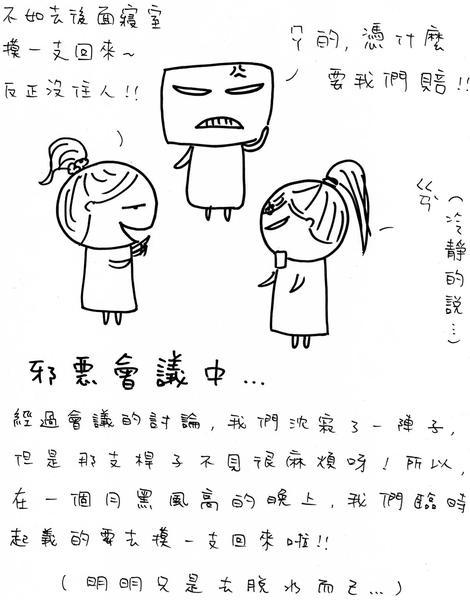 不如去後面寢室
摸一支回來~
反正沒住人!!
ㄕ的,憑什麼
要我們賠!!
ㄍㄞ
(冷靜的說…)
邪惡會議中...
經過會議的討論,我們沈寂了一陣子,
但是那支桿子不見很麻煩呀!所以,
在一個月黑風高的晚上,我們臨時
起義的要去摸一支回來啦!!
(明明只是去脫水而已...)